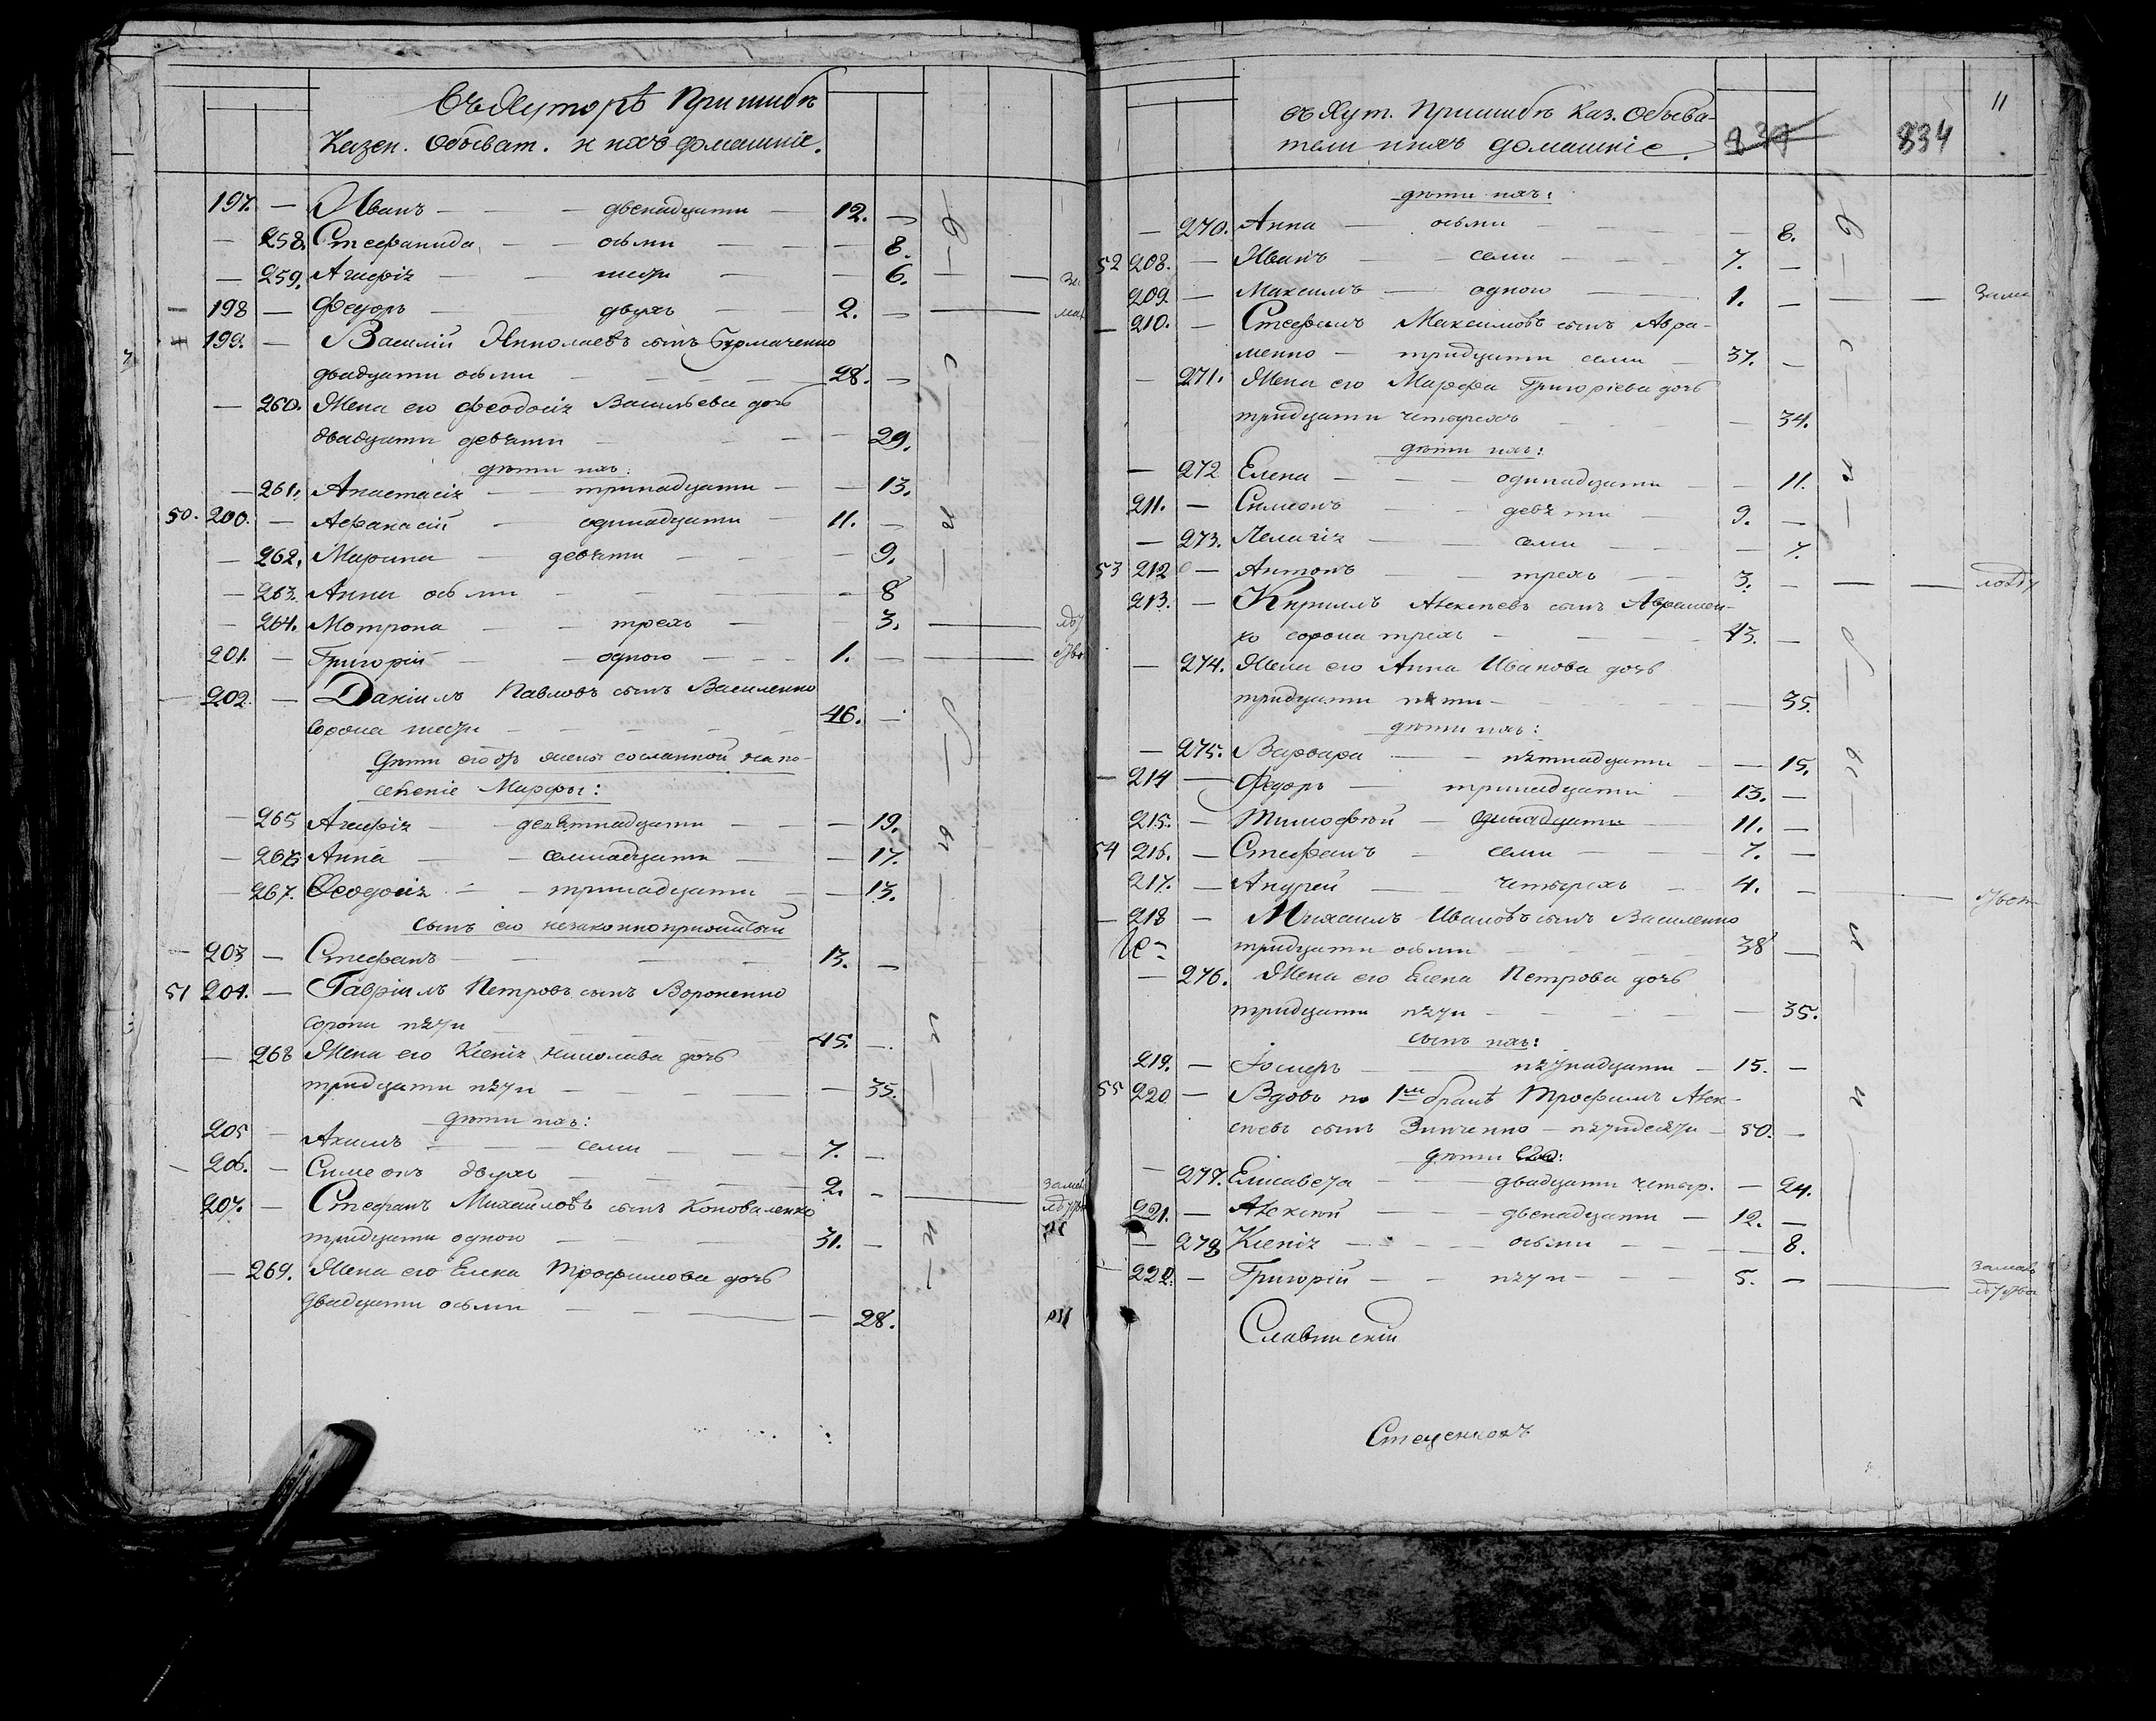 Въ Хуторѣ Пришибѣ
Казен. Обыват. и ихъ домашніе.
197. — Иванъ — двенадцати — 12. —
— 258. Стефанида — осьми — 8.
— 259. Агафія — шести — 6.
198 — Федоръ — двухъ — 2. —
199. — Василій Николаевъ сынъ
двадцати осьми — 28. —
— 260. Жена его Феодосія Васильева дочь
двадцати девяти — 29.
дѣти ихъ:
— 261. Анастасія — тринадцати — 13.
50. 200. — Афанасій — одинадцати — 11. —
— 262. Марина — девяти — 9.
— 263. Анна осьми — 8
— 264. Мотрона — трехъ — 3.
201. — Григорій — одного — 1. —
202. — Даніилъ Павловъ сынъ Василенко
сорока шести — 46. —
Дѣти его отъ жены сосланной на по-
селеніе Марфы:
— 265 Агафія — девятнадцати — 19.
— 266. Анна — семнадцати — 17.
— 267. Феодосія — тринадцати — 13.
сынъ его незаконноприжитый
203 — Стефанъ — 13. —
51 204. — Гавріилъ Петровъ сынъ Вороненко
сорока пяти — 45. —
— 268 Жена его Ксенія Николаева дочь
тридцати пяти — 35.
дѣти ихъ:
205 — Акимъ — семи — 7. —
206. — Симеонъ двухъ — 2. —
207. — Стефанъ Михайловъ сынъ Коноваленко
тридцати одного — 31. —
— 269. Жена его Елена Трофимова дочь
двадцати осьми — 28.
11
въ Хут. Пришибѣ Каз. Обыва-
тели и ихъ домашніе.
834
дѣти ихъ:
— 270. Анна — осьми — 8.
52 208. — Иванъ — семи — 7. —
209. — Максимъ — одного — 1. —
210. — Стефанъ Максимовъ сынъ Авра-
менко — тридцати семи — 37. —
— 271. Жена его Марфа Григоріева дочь
тридцати четырехъ — 34.
дѣти ихъ:
— 272 Елена — одинадцати — 11.
211. — Симеонъ — девяти — 9. —
— 273. Пелагія — семи — 7.
53 212 — Антонъ — трехъ — 3. —
213. — Кирилъ Алексѣевъ сынъ Аврамен-
ко сорока трехъ — 43. —
— 274. Жена его Анна Иванова дочь
тридцати пяти — 35.
дѣти ихъ:
— 275. Варвара — пятнадцати — 15.
— 214 — Федоръ — тринадцати — 13. —
215. — Тимофѣй — одинадцати — 11. —
54 216. — Стефанъ — семи — 7. —
217. — Андрей — четырехъ — 4. —
218 — Михаилъ Ивановъ сынъ Василенко
тридцати осьми — 38 —
— 276. Жена его Елена Петрова дочь
тридцати пяти — 35.
сынъ ихъ:
219. — Іосифъ — пятнадцати — 15. —
55 220 — Вдовъ по 1мъ бракѣ Трофимъ Алек-
сѣевъ сынъ Зинченко — пятидесяти — 50. —
дѣти его:
— 277. Елисавета — двадцати четыр. — 24.
221. — Алексѣй — двенадцати — 12. —
— 278 Ксенія — осьми — 8.
222. — Григорій — пяти — 5. —
Славинскій